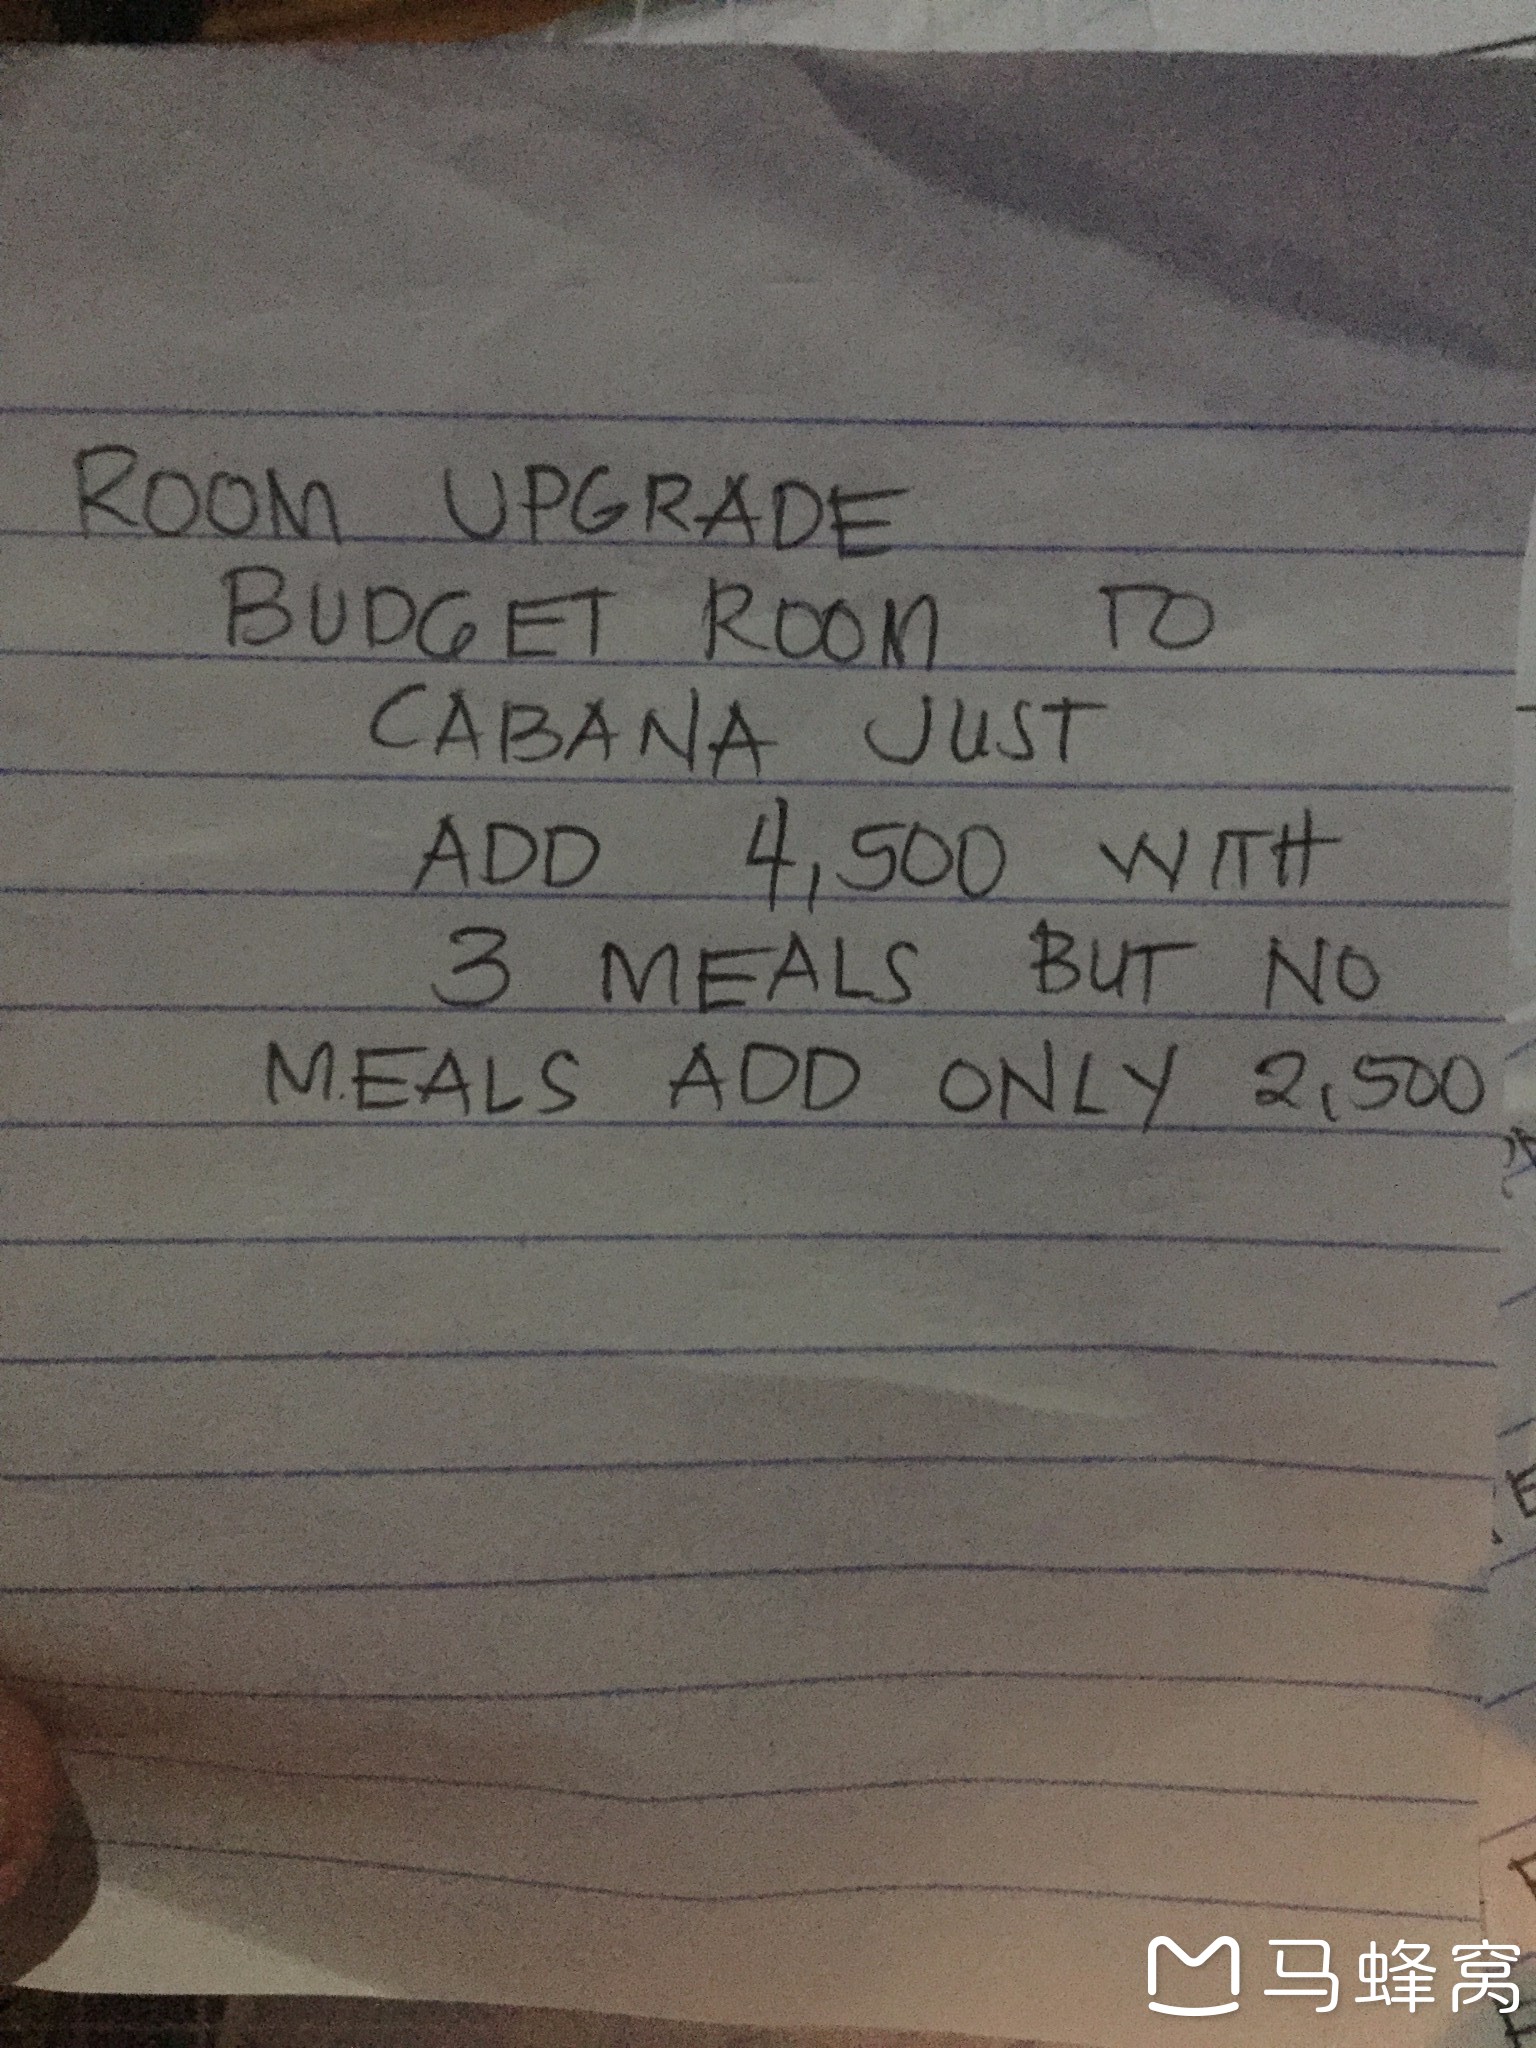 ROOM UPGRADE
BUDGET ROOM TO
CABANA JUST
ADD 4,500 WITH
3 MEALS BUT NO
MEALS ADD ONLY 2,500
马蜂窝